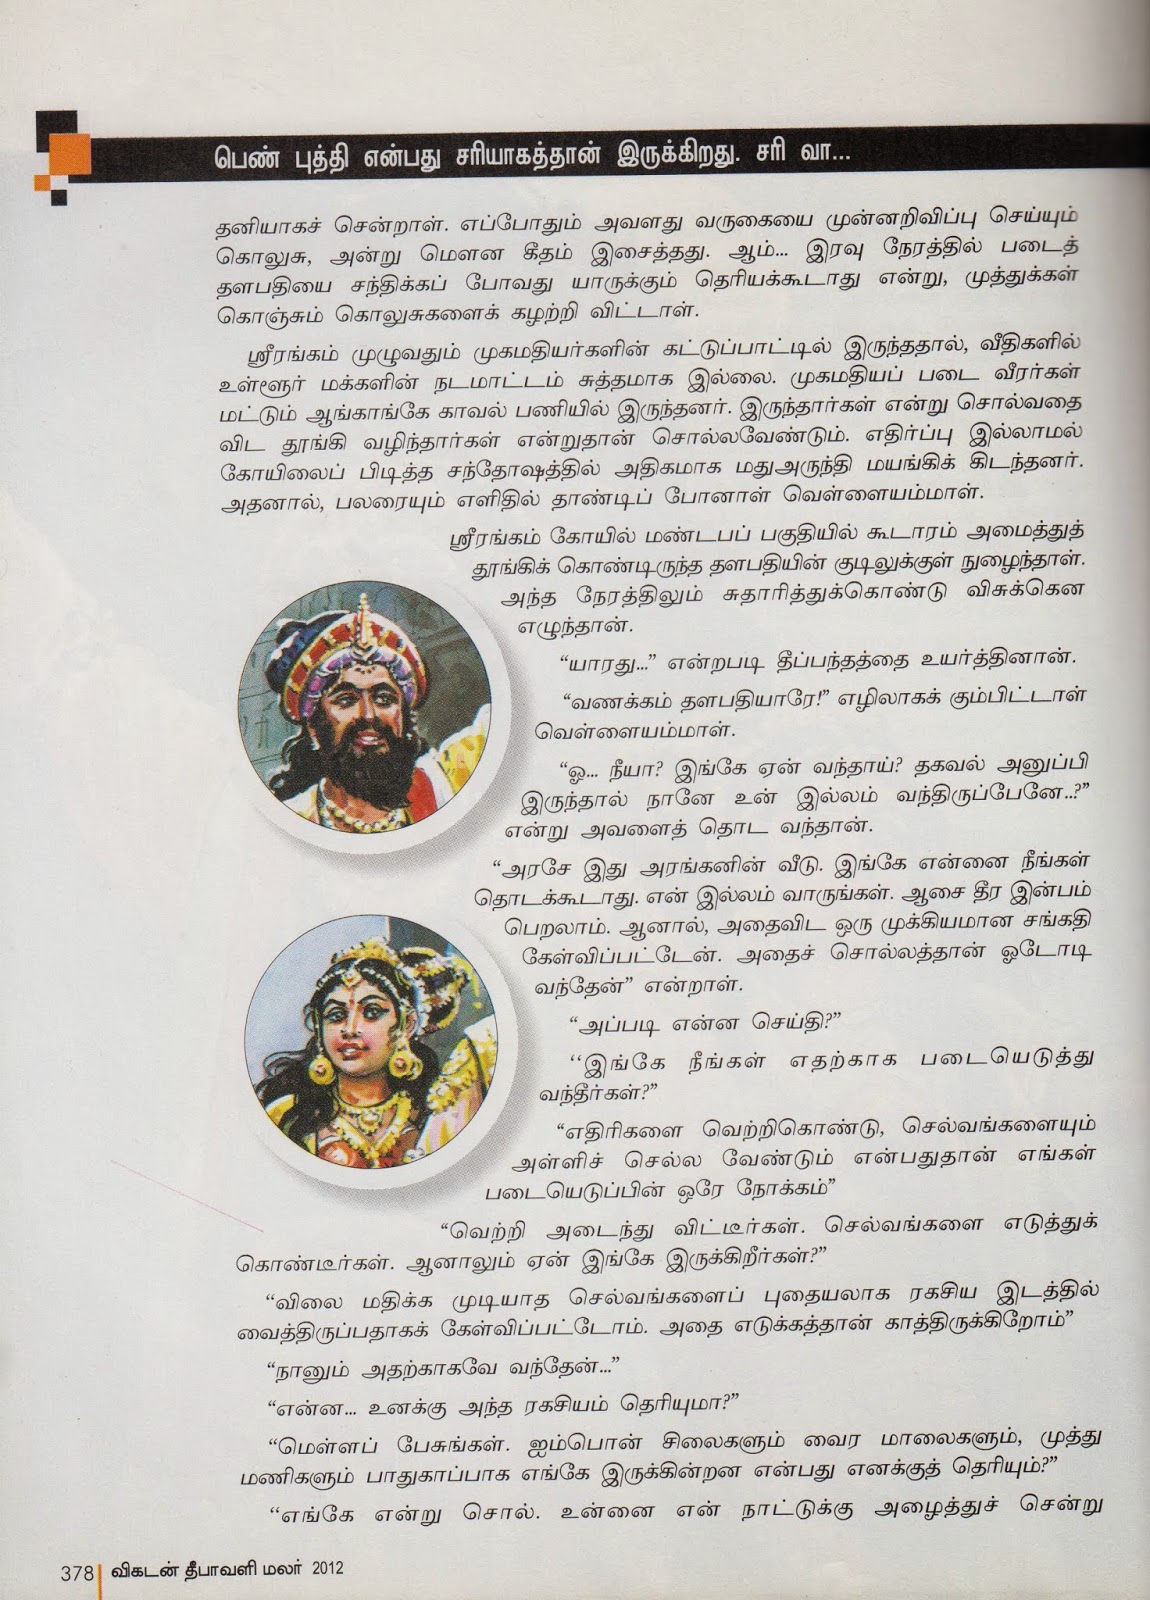 பெண் புத்தி என்பது சரியாகத்தான் இருக்கிறது. சரி வா...
தனியாகச் சென்றாள். எப்போதும் அவளது வருகையை முன்னறிவிப்பு செய்யும்
கொலுசு, அன்று மௌன கீதம் இசைத்தது. ஆம்... இரவு நேரத்தில் படைத்
தளபதியை சந்திக்கப் போவது யாருக்கும் தெரியக்கூடாது என்று, முத்துக்கள்
கொஞ்சும் கொலுசுகளைக் கழற்றி விட்டாள்.
ஸ்ரீரங்கம் முழுவதும் முகமதியர்களின் கட்டுப்பாட்டில் இருந்ததால், வீதிகளில்
உள்ளூர் மக்களின் நடமாட்டம் சுத்தமாக இல்லை. முகமதியப் படை வீரர்கள்
மட்டும் ஆங்காங்கே காவல் பணியில் இருந்தனர். இருந்தார்கள் என்று சொல்வதை
விட தூங்கி வழிந்தார்கள் என்றுதான் சொல்லவேண்டும். எதிர்ப்பு இல்லாமல்
கோயிலைப் பிடித்த சந்தோஷத்தில் அதிகமாக மதுஅருந்தி மயங்கிக் கிடந்தனர்.
அதனால், பலரையும் எளிதில் தாண்டிப் போனாள் வெள்ளையம்மாள்.
ஸ்ரீரங்கம் கோயில் மண்டபப் பகுதியில் கூடாரம் அமைத்துத்
தூங்கிக் கொண்டிருந்த தளபதியின் குடிலுக்குள் நுழைந்தாள்.
அந்த நேரத்திலும் சுதாரித்துக்கொண்டு விசுக்கென
எழுந்தான்.
“யாரது...” என்றபடி தீப்பந்தத்தை உயர்த்தினான்.
“வணக்கம் தளபதியாரே!” எழிலாகக் கும்பிட்டாள்
வெள்ளையம்மாள்.
“ஓ... நீயா? இங்கே ஏன் வந்தாய்? தகவல் அனுப்பி
இருந்தால் நானே உன் இல்லம் வந்திருப்பேனே..?”
என்று அவளைத் தொட வந்தான்.
“அரசே இது அரங்கனின் வீடு. இங்கே என்னை நீங்கள்
தொடக்கூடாது. என் இல்லம் வாருங்கள். ஆசை தீர இன்பம்
பெறலாம். ஆனால், அதைவிட ஒரு முக்கியமான சங்கதி
கேள்விப்பட்டேன். அதைச் சொல்லத்தான் ஓடோடி
வந்தேன்” என்றாள்.
“அப்படி என்ன செய்தி?”
‘‘இங்கே நீங்கள் எதற்காக படையெடுத்து
வந்தீர்கள்?”
“எதிரிகளை வெற்றிகொண்டு, செல்வங்களையும்
அள்ளிச் செல்ல வேண்டும் என்பதுதான் எங்கள்
படையெடுப்பின் ஒரே நோக்கம்”
“வெற்றி அடைந்து விட்டீர்கள். செல்வங்களை எடுத்துக்
கொண்டீர்கள். ஆனாலும் ஏன் இங்கே இருக்கிறீர்கள்?”
‘‘விலை மதிக்க முடியாத செல்வங்களைப் புதையலாக ரகசிய இடத்தில்
வைத்திருப்பதாகக் கேள்விப்பட்டோம். அதை எடுக்கத்தான் காத்திருக்கிறோம்”
“நானும் அதற்காகவே வந்தேன்...”
“என்ன... உனக்கு அந்த ரகசியம் தெரியுமா?”
“மெள்ளப் பேசுங்கள். ஐம்பொன் சிலைகளும் வைர மாலைகளும், முத்து
மணிகளும் பாதுகாப்பாக எங்கே இருக்கின்றன என்பது எனக்குத் தெரியும்?”
‘‘எங்கே என்று சொல். உன்னை என் நாட்டுக்கு அழைத்துச் சென்று
378 விகடன் தீபாவளி மலர் 2012